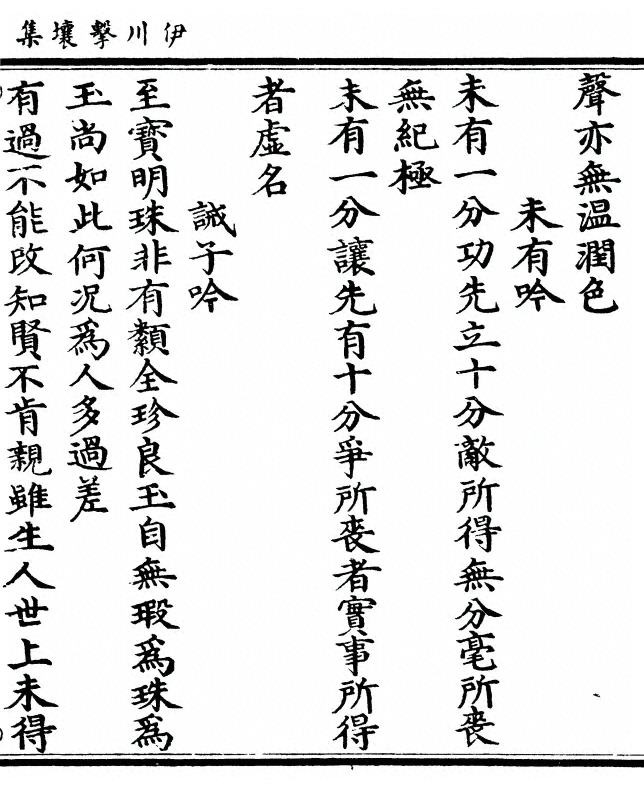 伊川擊壤集
聲亦無温潤色
未有吟
未有一分功先立十分敵所得無分毫所喪
無紀極
未有一分讓先有十分爭所喪者實事所得
者虛名
誡子吟
至寶明珠非有纇全珍良玉自無瑕爲珠爲
玉尚如此何况爲人多過差
有過不能改知賢不肯親雖生人世上未得